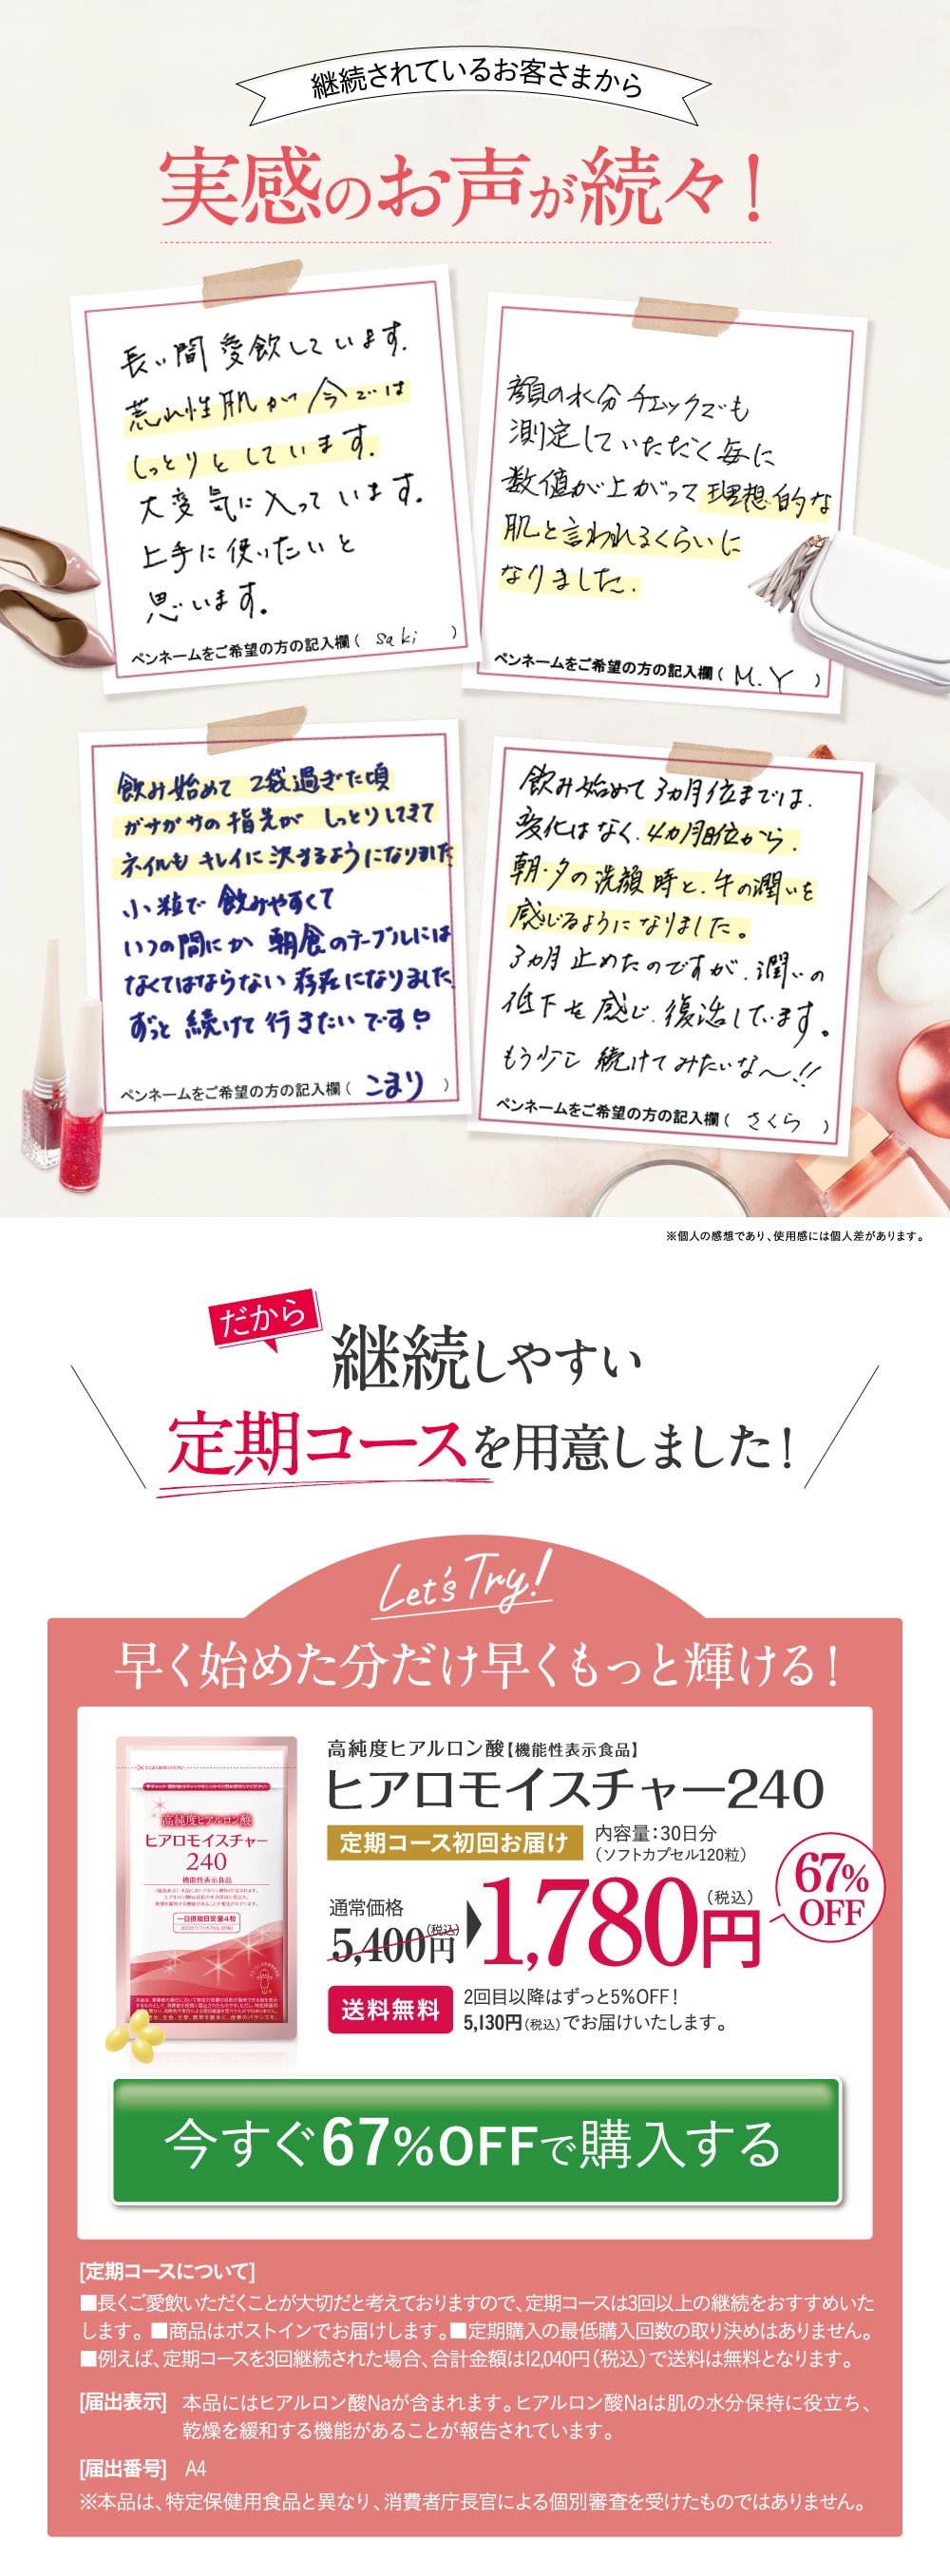 継続されているお客さまから
実感のお声が続々！
長い間愛飲しています.
荒れ性肌が今では
しっとりとしています.
大変気に入っています.
上手に使いたいと
思います。
ペンネームをご希望の方の記入欄（ saki ）
顔の水分チェックでも
測定していただく毎に
数値が上がって理想的な
肌と言われるくらいに
なりました.
ペンネームをご希望の方の記入欄（ M.Y ）
飲み始めて 2袋過ぎた頃
ガサガサの指先が しっとりしてきて
ネイルも キレイに決まるようになりました
小粒で 飲みやすくて
いつの間にか 朝食のテーブルには
なくてはならない 存在になりました
ずっと 続けて行きたいです
ペンネームをご希望の方の記入欄（ こまり ）
飲み始めて3ヵ月位までは.
変化はなく.4ヵ月目位から.
朝・夕の洗顔時と.の潤いを
感じるようになりました。
3ヵ月止めたのですが.潤いの
低下を感じ.復活しています。
もう少し 続けてみたいな〜!!
ペンネームをご希望の方の記入欄（ さくら ）
※個人の感想であり、使用感には個人差があります。
だから
継続しやすい
定期コースを用意しました！
Let's Try!
早く始めた分だけ早くもっと輝ける！
高純度ヒアルロン酸【機能性表示食品】
ヒアロモイスチャー240
定期コース初回お届け
内容量：30日分
（ソフトカプセル120粒）
通常価格
5,400円（税込）
1,780円（税込）
67%
OFF
送料無料
2回目以降はずっと5%OFF！
5,130円（税込）でお届けいたします。
高純度ヒアルロン酸
ヒアロモイスチャー
240
機能性表示食品
一日摂取目安量4粒
今すぐ67%OFFで購入する
[定期コースについて]
■長くご愛飲いただくことが大切だと考えておりますので、定期コースは3回以上の継続をおすすめいた
します。 ■商品はポストインでお届けします。■定期購入の最低購入回数の取り決めはありません。
■例えば、定期コースを3回継続された場合、合計金額は12,040円（税込）で送料は無料となります。
[届出表示] 本品にはヒアルロン酸Naが含まれます。ヒアルロン酸Naは肌の水分保持に役立ち、
乾燥を緩和する機能があることが報告されています。
[届出番号] A4
※本品は、特定保健用食品と異なり、消費者庁長官による個別審査を受けたものではありません。